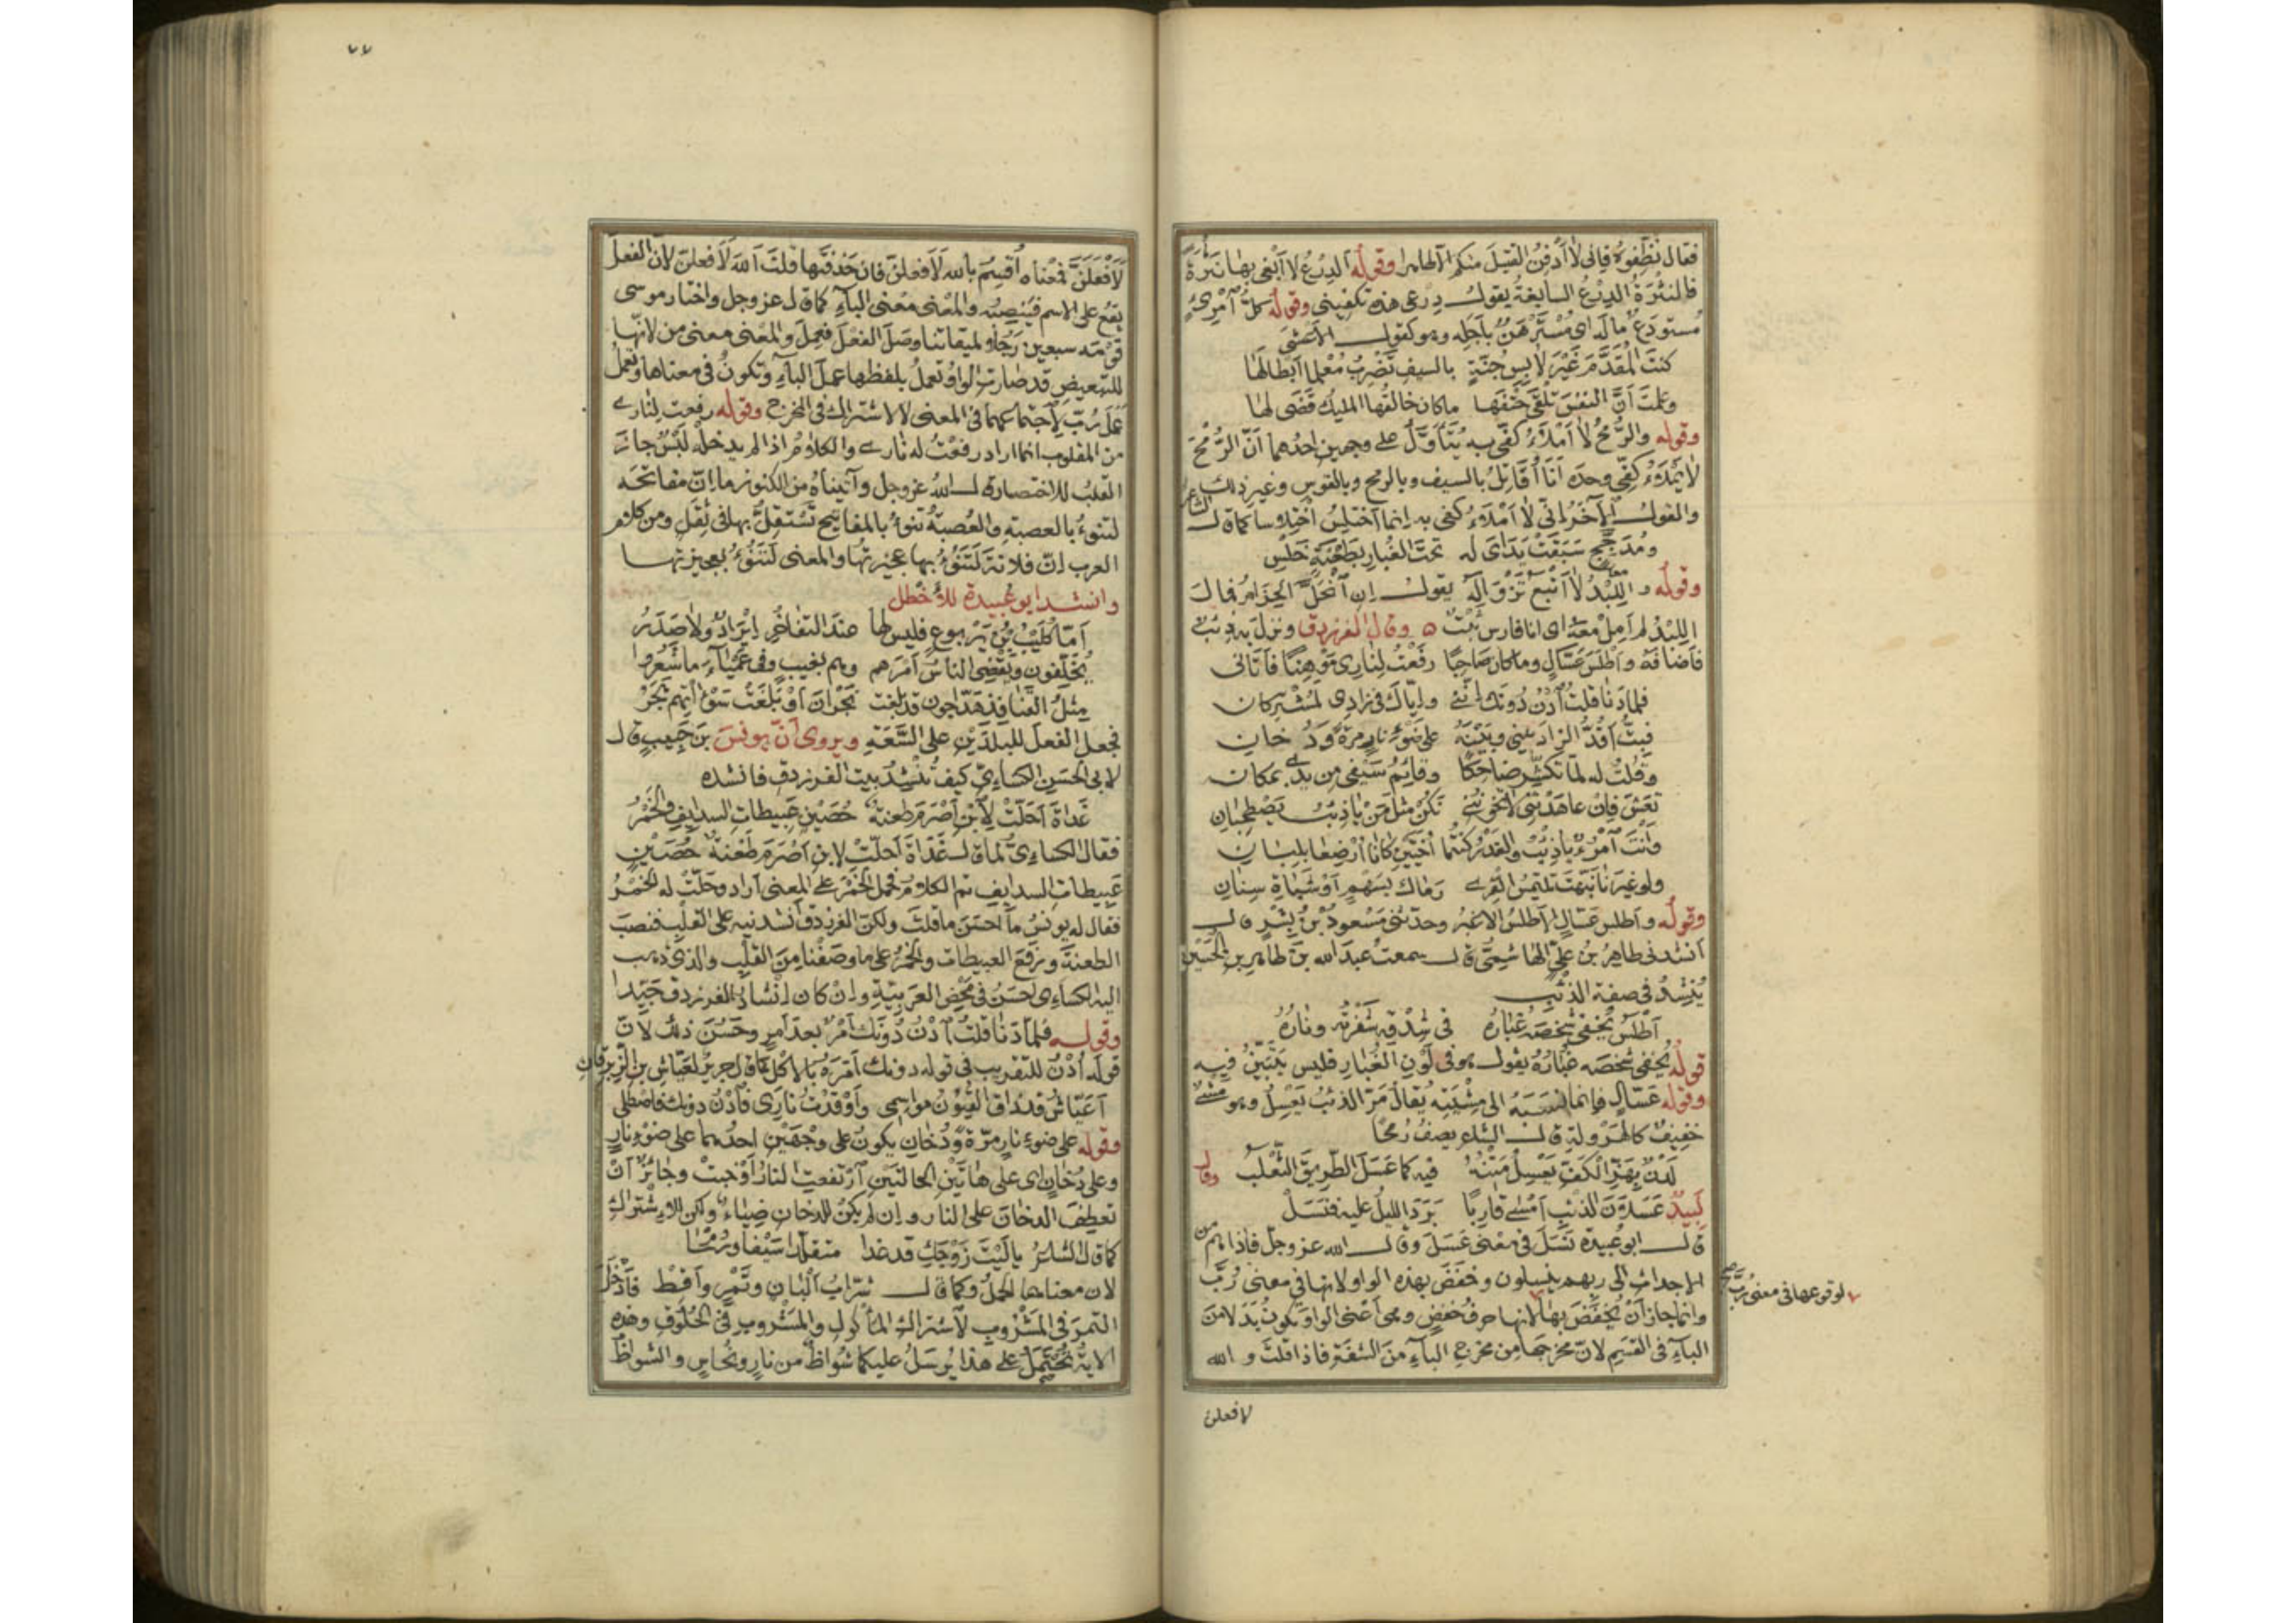 فقال نظفوه فإنى لا أدفن القتيل منكم الا طاهرا وقوله الدرع لا أبغى بها نثرة
فالنثرة الدرع السابغة يقول درعى هذه تكفينى وقوله كل امرئ
مستودع ماله اى مسترهن بأجله وهو كقول الأعشى
كنت المقدم غير لابس جنة بالسيف تضرب معلما ابطالها
وعلمت أن النفس تلقى حتفها ما كان خالقها المليك قضى لها
وقوله والرمح لا أملأ كفى به يتأول على وجهين احدهما أن الرمح
لا يملأ كفى وحده أنا أقاتل بالسيف وبالرمح وبالقوس وغير ذلك
والقول الآخر انى لا أملأ كفى به انما أختلس اختلاسا كما قال الشاعر
ومدجج سبقت يداى له تحت الغبار بطعنة خلس
وقوله واللبد لا أتبع تزواله يقول ان انحل الحزام فمال
اللبد لم أمل معه اى انا فارس ثبت ه وقال الفرزدق ونزل به ذئب
فأضافه وأطلس عسال وما كان صاحبا رفعت لنارى موهنا فأتانى
فلما دنا قلت ادن دونك اننى واياك فى زادى لمشتركان
فبت أقد الزاد بينى وبينه على ضوء نار مرة ودخان
وقلت له لما تكشر ضاحكا وقائم سيفى من يدى بمكان
تعش فإن عاهدتنى لا تخوننى نكن مثل من يا ذئب يصطحبان
وأنت امرؤ يا ذئب والغدر كنتما أخيين كانا أرضعا بلبان
ولو غيرنا نبهت تلتمس القرى رماك بسهم أو شباة سنان
وقوله وأطلس عسال الأطلس الاغبر وحدثنى مسعود بن بشر قال
أنشدنى طاهر بن على الهاشمى قال سمعت عبد الله بن طاهر بن الحسين
ينشد فى صفة الذئب
أطلس يخفى شخصه غباره فى شدقه شفرته وناره
قوله يخفى شخصه غباره يقول هو فى لون الغبار فليس يتبين فيه
وقوله عسال فانما نسبه الى مشيته يقال مر الذئب يعسل وهو مشى
خفيف كالهرولة قال الشاعر يصف رمحا
لدن بهز الكف يعسل متنه فيه كما عسل الطريق الثعلب وقال
لبيد عسلان الذئب أمسى قاربا برد الليل عليه فنسل
قال ابو عبيدة نسل فى معنى عسل وقال الله عز وجل فاذا هم من
الاجداث الى ربهم ينسلون وخفض بهذه الواو لانها فى معنى رب
لوقوعها فى معنى رب صح
وانما جاز أن يخفض بها لانها حرف خفض وهى أعنى الواو تكون بدلا من
الباء فى القسم لان مخرجها من مخرج الباء من الشفة فاذا قلت والله
لافعلن
٧٧
لأفعلن فمعناه أقسم بالله لأفعلن فان حذفتها قلت الله لأفعلن لأن الفعل
يقع على الاسم فينصبه والمعنى معنى الباء كما قال عز وجل واختار موسى
قومه سبعين رجلا لميقاتنا وصل الفعل فعمل والمعنى معنى من لأنها
للتبعيض قد صارت الواو تعمل بلفظها عمل الباء وتكون فى معناها وتعمل
عمل رب لاجتماعهما فى المعنى للاشتراك فى المخرج وقوله رفعت لنارى
من المقلوب انما اراد رفعت له نارى والكلام اذا لم يدخله لبس جاز
القلب للاختصار قال الله عز وجل وآتيناه من الكنوز ما ان مفاتحه
لتنوء بالعصبة والعصبة تنوء بالمفاتيح تستقل بها فى ثقل ومن كلام
العرب ان فلانة لتنوء بها عجيزتها والمعنى لتنوء بعجيزتها
وانشد ابو عبيدة للأخطل
أما كليب بن يربوع فليس لها عند التفاخر ايراد ولا صدر
مخلفون ويقضى الناس أمرهم وهم بغيب وفى عمياء ما شعروا
مثل القنافذ هداجون قد بلغت نجران أو بلغت سوءاتهم هجر
فجعل الفعل للبلدين على السعة ويروى أن يونس بن حبيب قال
لابى الحسن الكسائى كيف تنشد بيت الفرزدق فانشده
غداة أحلت لابن أصرم طعنة حصين عبيطات السدايف والخمر
فقال الكسائى لما قال غداة أحلت لابن أصرم طعنة حصين
عبيطات السدايف تم الكلام فحمل الخمر على المعنى أراد وحلت له الخمر
فقال له يونس ما أحسن ما قلت ولكن الفرزدق أنشدنيه على القلب فنصب
الطعنة ورفع العبيطات والخمر على ما وصفنا من القلب والذى ذهب
اليه الكسائى احسن فى محض العربية وان كان انشاد الفرزدق جيدا
وقوله فلما دنا قلت ادن دونك أمر بعد أمر وحسن ذلك لأن
قوله أدن للتقريب فى قوله دونك أمره بالاكل كما قال جرير لعياش بن الزبرقان
أعياش قد ذاق القيون مواسمى وأوقدت نارى فأدن دونك فاصطلى
وقوله على ضوء نار مرة ودخان يكون على وجهين احدهما على ضوء نار
وعلى دخان اى على هاتين الحالتين ارتفعت النار أو خبت وجائز أن
تعطف الدخان على النار وان لم يكن للدخان ضياء ولكن للاشتراك
كما قال الشاعر يا ليت زوجك قد غدا متقلدا سيفا ورمحا
لان معناهما الحمل وكما قال شراب ألبان وتمر وأقط فأدخل
التمر فى المشروب لاشتراك المأكول والمشروب فى الحلوق وهذه
الاية تحتمل على هذا يرسل عليكما شواظ من نار ونحاس والشواظ